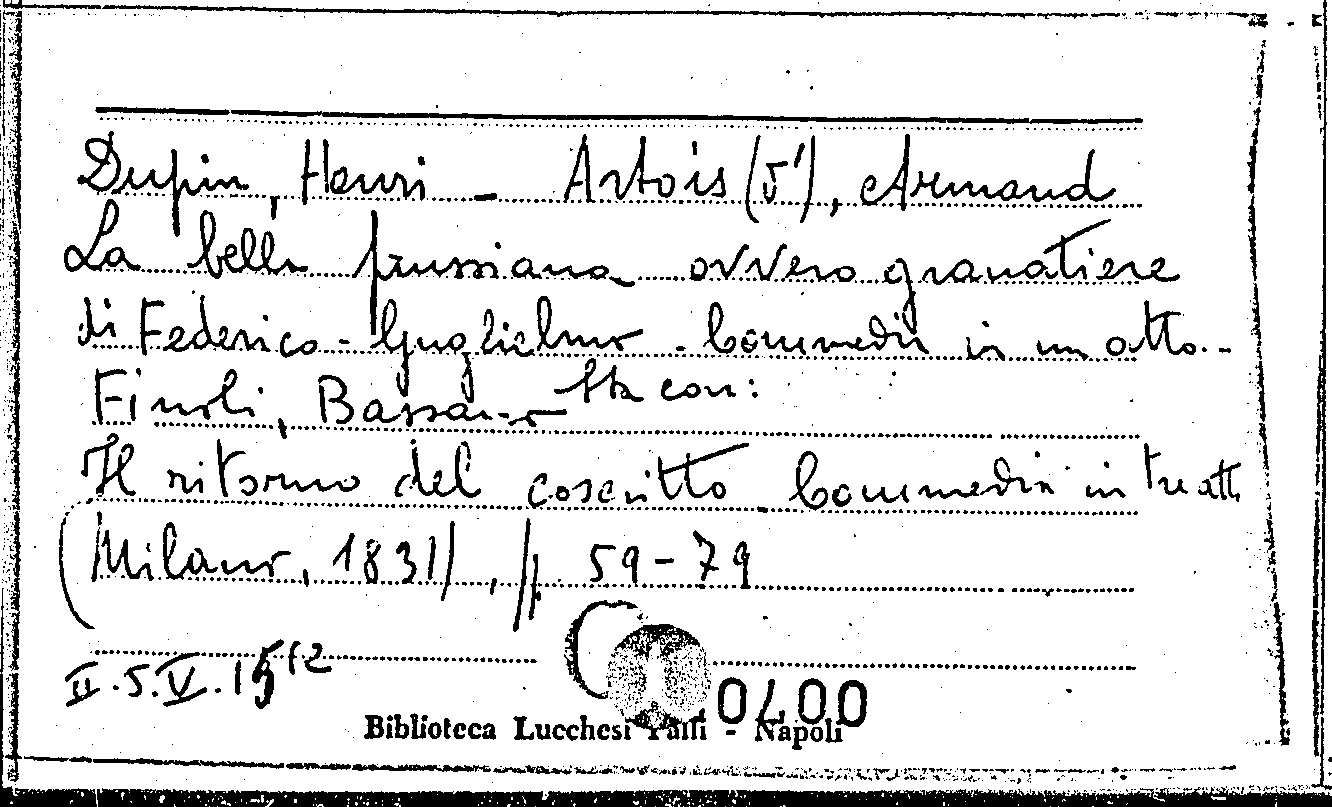 Dupin, Henri - Artois (d'), Armand
La bella prussiana ovvero granatiere
di Federico-Guglielmo. Commedia in un atto. -
Finoli, Bassano Sta con:
Il ritorno del coscritto Commedia in tre atti
(Milano, 1831), pp. 59-79
II.5.V.15 (2
0400
Biblioteca Lucchesi Palli - Napoli